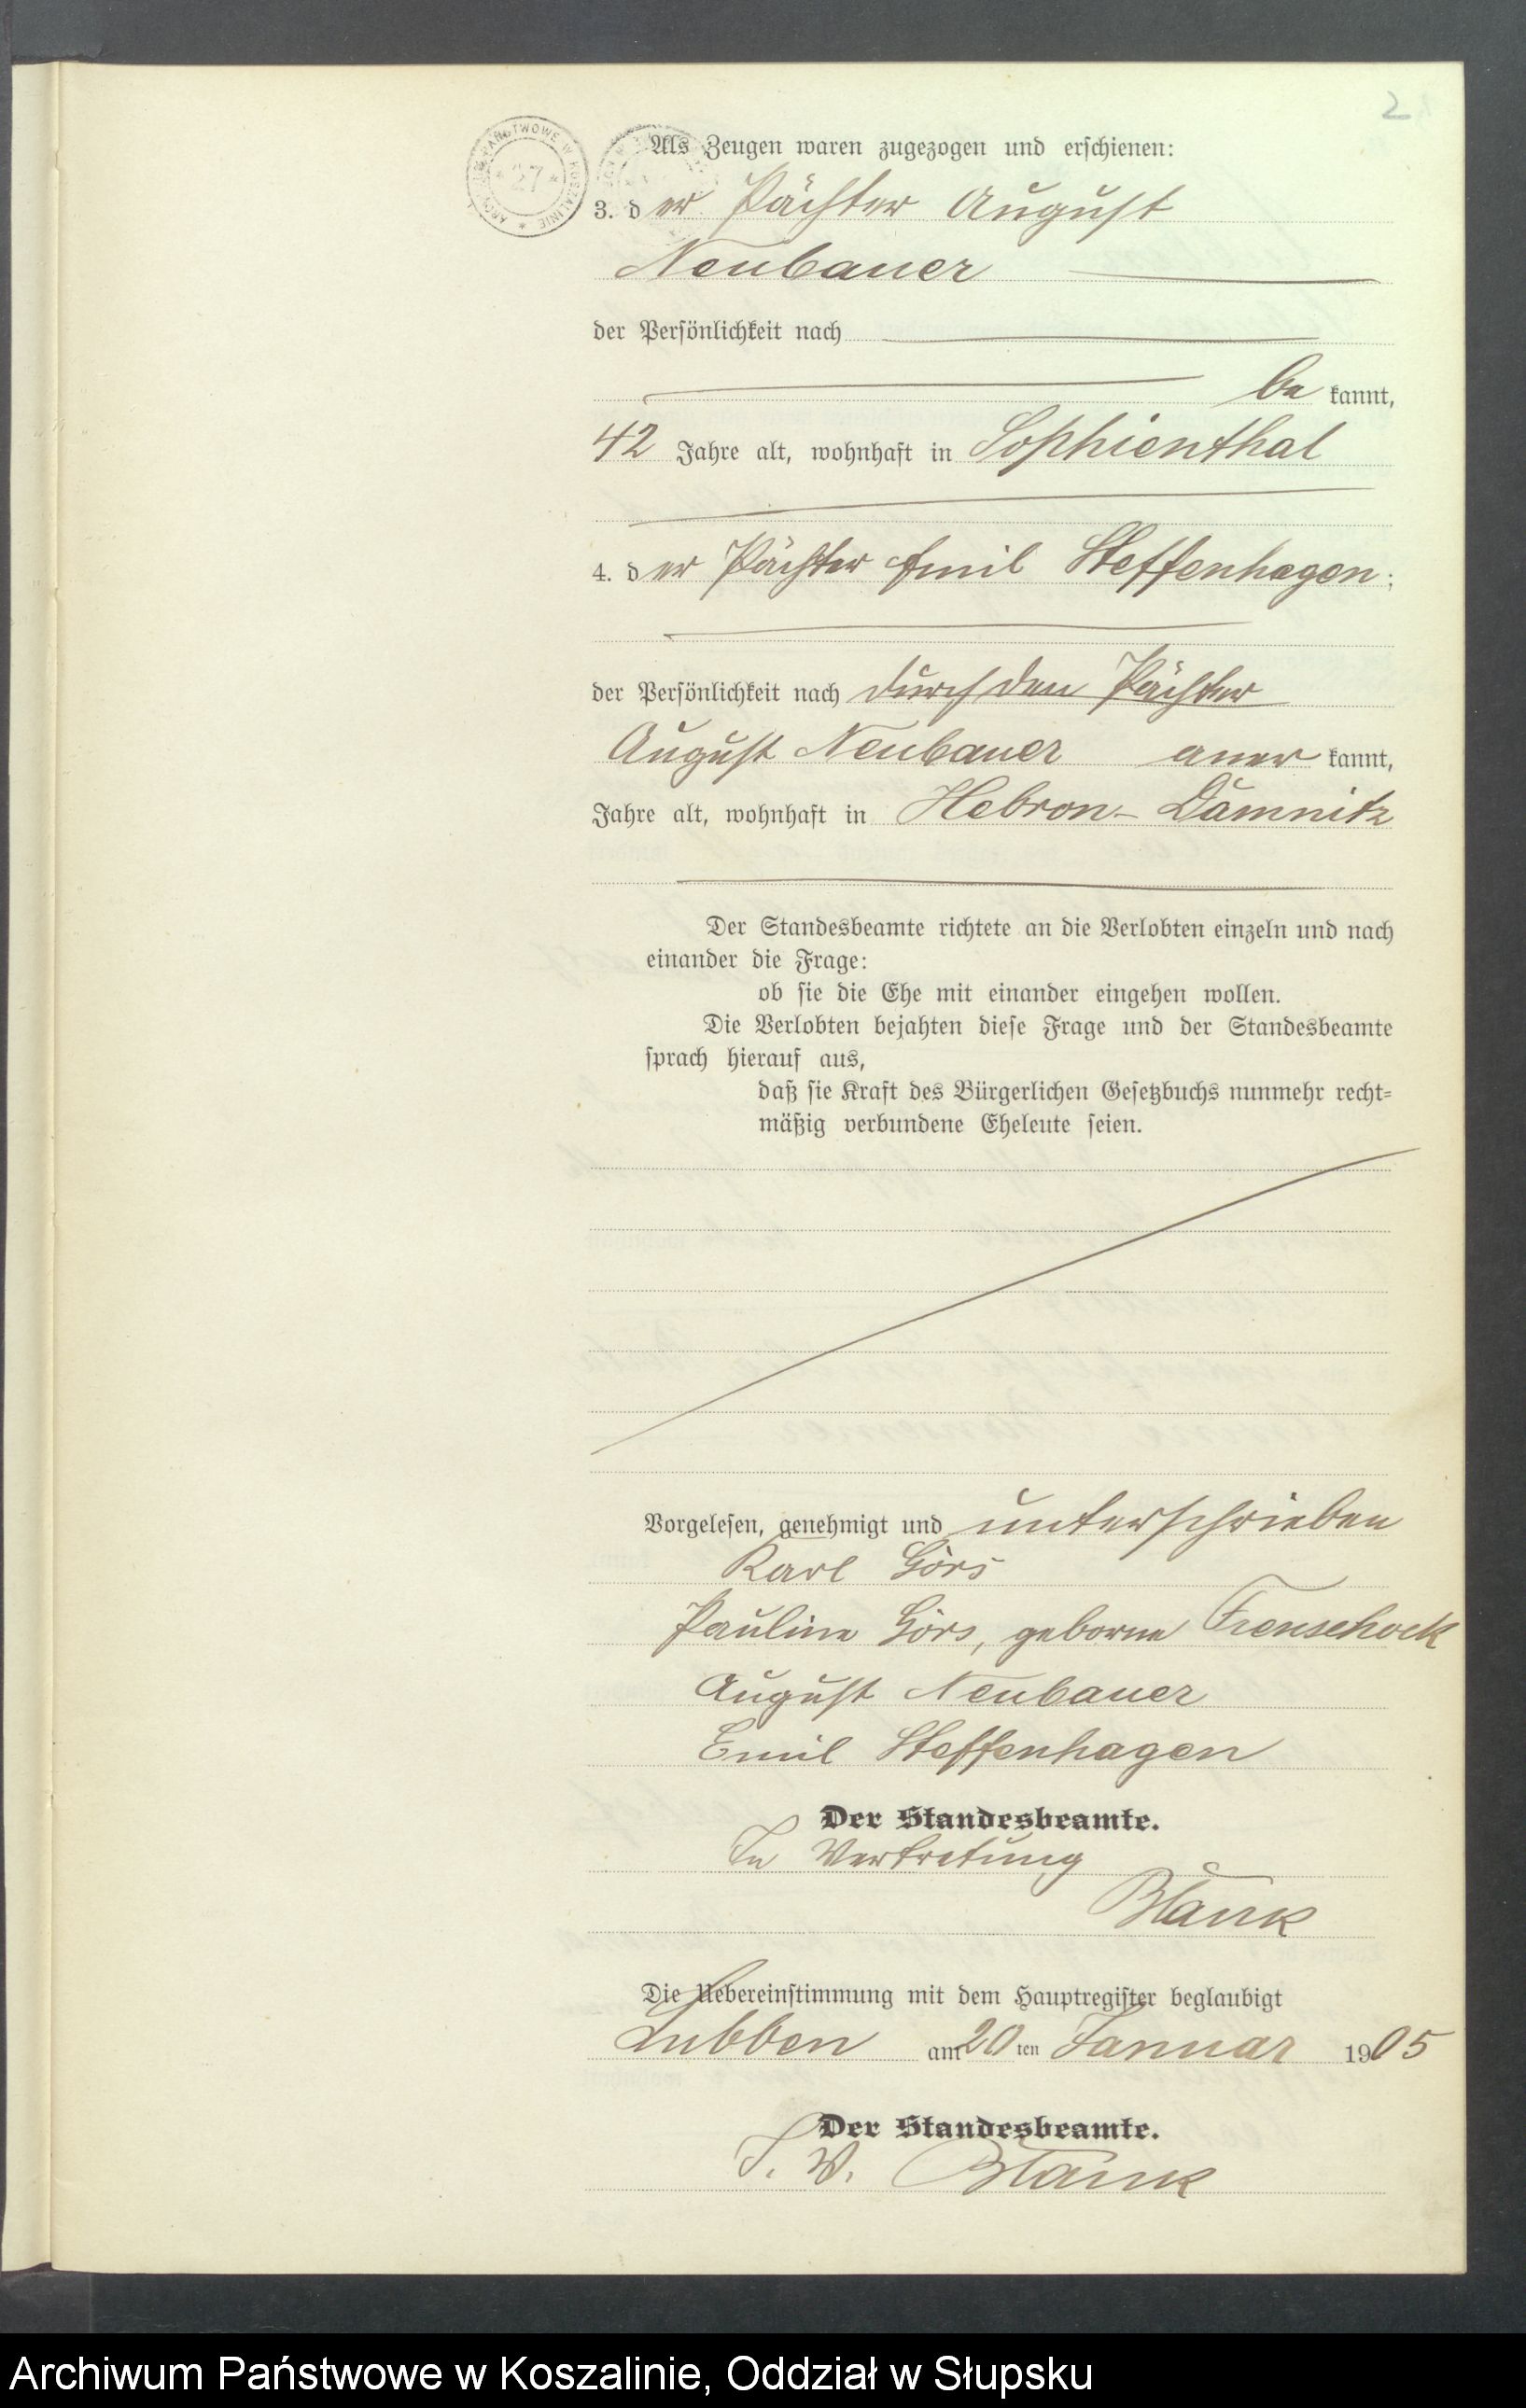 2
ARCHIWUM PAŃSTWOWE W KOSZALINIE
* 27 *
Als Zeugen waren zugezogen und erschienen:
3. der Pächter August
Neubauer
der Persönlichkeit nach
be kannt,
42 Jahre alt, wohnhaft in Sophienthal
4. der Pächter Emil Steffenhagen;
der Persönlichkeit nach durch den Pächter
August Neubauer aner kannt,
Jahre alt, wohnhaft in Hebron-Damnitz
Der Standesbeamte richtete an die Verlobten einzeln und nach
einander die Frage:
ob sie die Ehe mit einander eingehen wollen.
Die Verlobten bejahten diese Frage und der Standesbeamte
sprach hierauf aus,
daß sie Kraft des Bürgerlichen Gesetzbuchs nunmehr recht=
mäßig verbundene Eheleute seien.
Vorgelesen, genehmigt und unterschrieben
Karl Görs
Pauline Görs, geborne Frenschock
August Neubauer
Emil Steffenhagen
Der Standesbeamte.
In Vertretung
Blank
Die Uebereinstimmung mit dem Hauptregister beglaubigt
Lubben am 20 ten Januar 1905
Der Standesbeamte.
I. V. Blank
Archiwum Państwowe w Koszalinie, Oddział w Słupsku